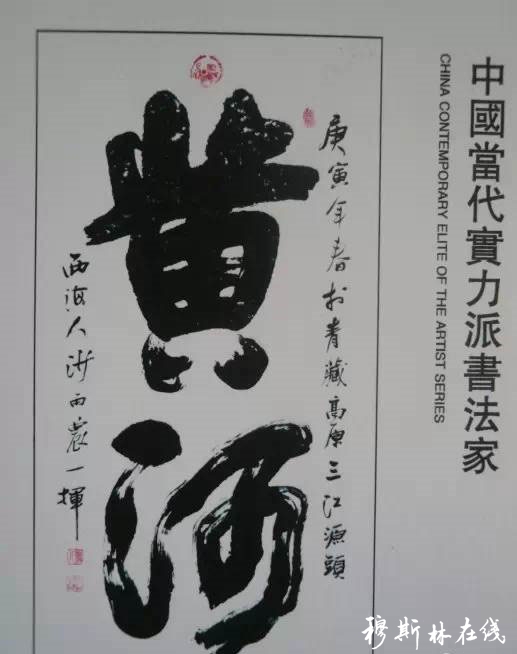 中國當代實力派書法家
CHINA CONTEMPORARY ELITE OF THE ARTIST SERIES
庚寅年春於青藏高原三江源頭
黃河
西海人沙雨农一揮
穆斯林在线